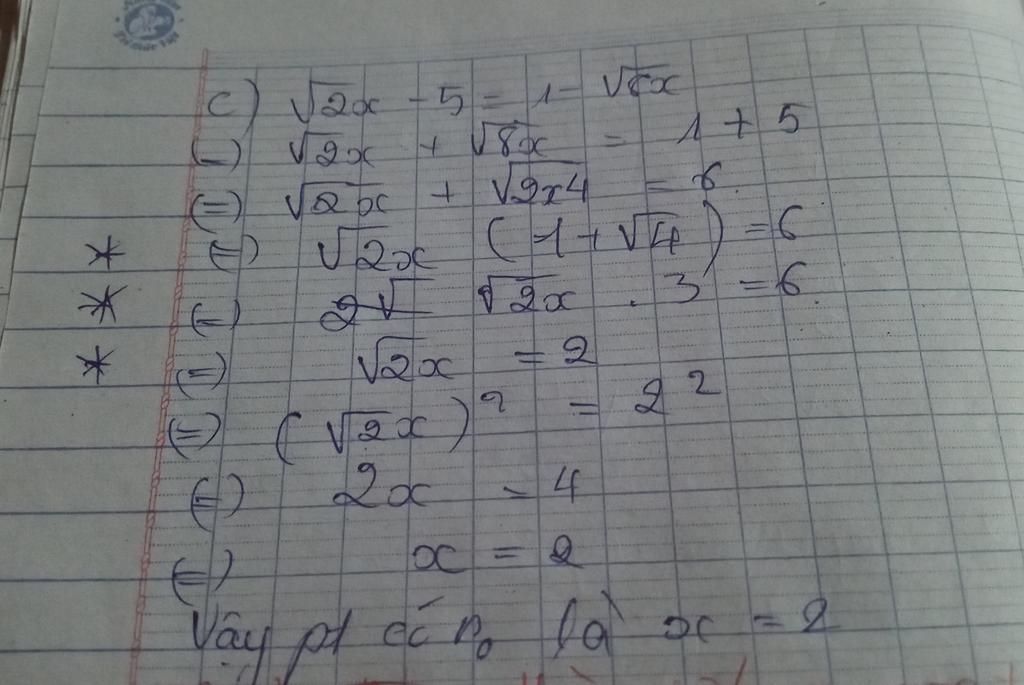 c) √2x - 5 = 1 - √8x
(=) √2x + √8x = 1 + 5
(=) √2x + √2x4 = 6
* (=) √2x (1 + √4) = 6
* (=) √2x . 3 = 6
* (=) √2x = 2
(=) (√2x)² = 2²
(=) 2x = 4
(=) x = 2
Vậy pt có n₀ là x = 2